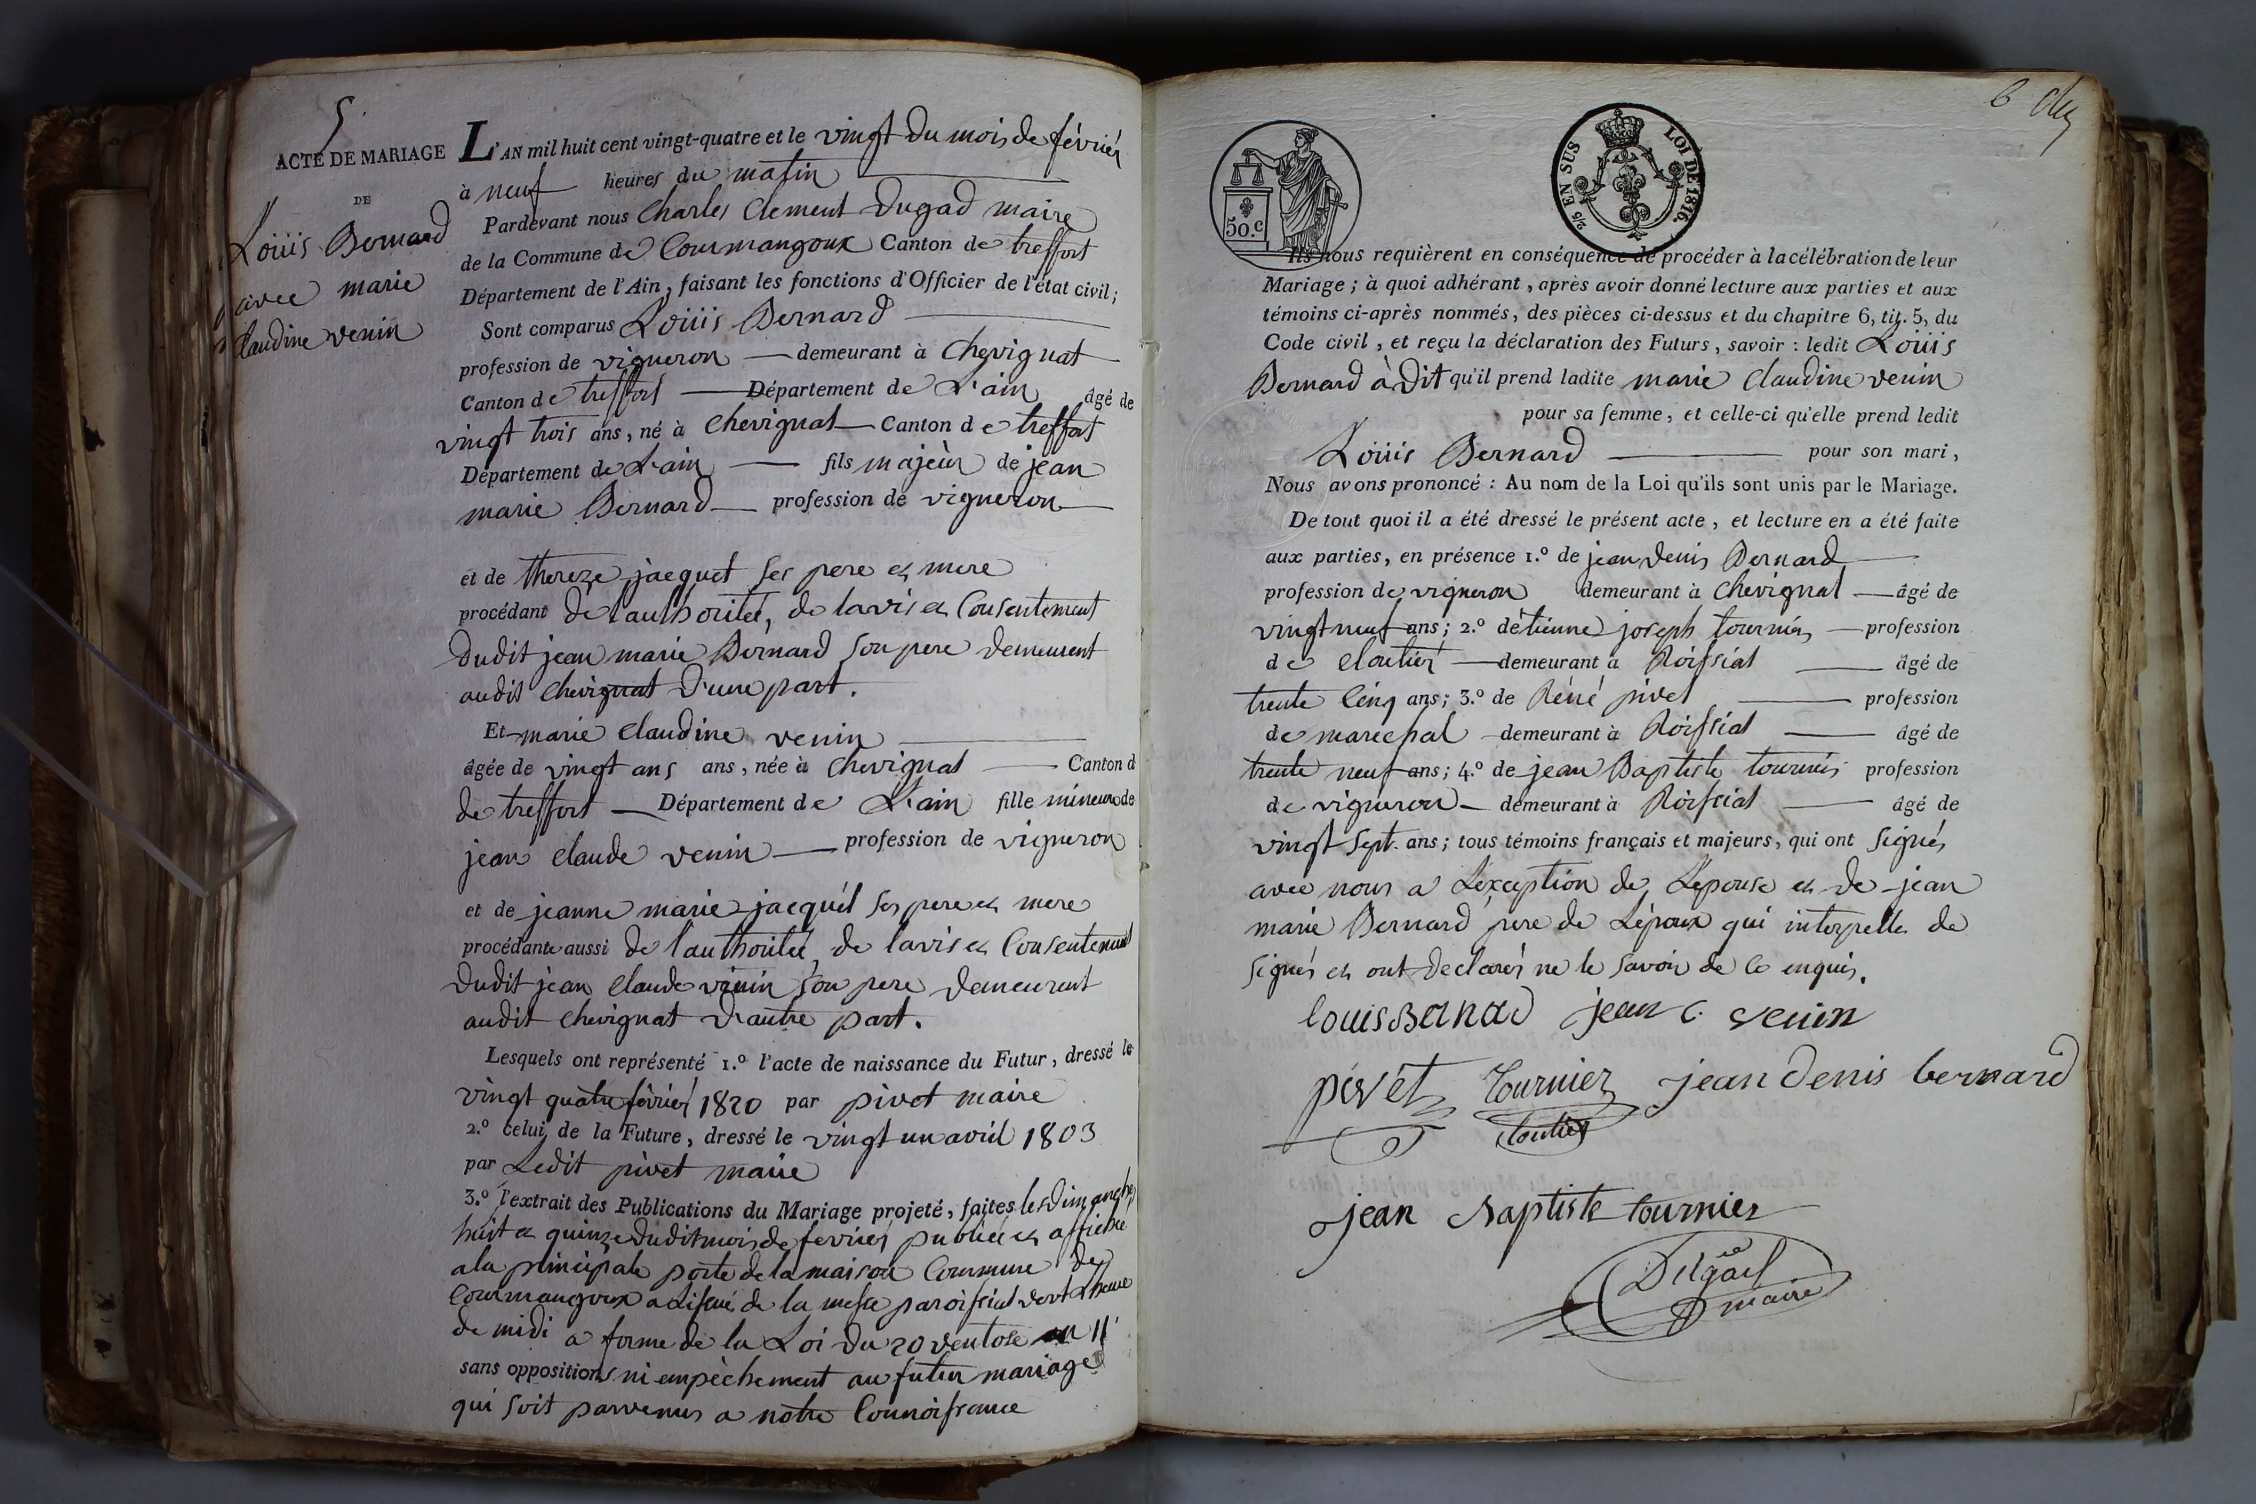 5.
ACTE DE MARIAGE
DE
Loüis Bernard
avec marie
claudine venin
L'AN mil huit cent vingt-quatre et le vingt du mois de février
à neuf heures du matin
Pardevant nous Charles Clement Dugad maire
de la Commune de Courmangoux Canton de treffort
Département de l'Ain, faisant les fonctions d'Officier de l'état civil;
Sont comparus Loüis Bernard
profession de vigneron demeurant à Chevignat
Canton de treffort Département de L'ain âgé de
vingt trois ans, né à Chevignat Canton de treffort
Département de L'ain fils majeur de jean
marie Bernard profession de vigneron
et de thereze jacquet ses pere et mere
procédant de l'authoritée, de lavis et Consentement
dudit jean marie Bernard son pere demeurent
audit chevignat d'une part.
Et marie claudine venin
âgée de vingt ans ans, née à chevignat Canton d
de treffort Département de L'ain fille mineure de
jean claude venin profession de vigneron
et de jeanne marie jacquet ses pere et mere
procédante aussi de l'authoritée, de lavis et Consentement
dudit jean claude venin son pere demeurent
audit chevignat d'autre part.
Lesquels ont représenté 1.º l'acte de naissance du Futur, dressé le
vingt quatre février 1820 par pivet maire
2.º celui de la Future, dressé le vingt un avril 1803
par Ledit pivet maire
3.º l'extrait des Publications du Mariage projeté, faites les dimanche
huit et quinze dudit mois de février publiée et affiché
a la principale porte de la maison Commune de
Courmangoux a Lissue de la messe paroissial vert Lheure
de midi a forme de la Loi du 20 ventose an 11
sans oppositions ni empèchement au futur mariage
qui soit parvenus a notre Connoissance
6
50.c
2/5 EN SUS LOI DE 1816.
Ils nous requièrent en conséquence de procéder à la célébration de leur
Mariage; à quoi adhérant, après avoir donné lecture aux parties et aux
témoins ci-après nommés, des pièces ci-dessus et du chapitre 6, tit. 5, du
Code civil, et reçu la déclaration des Futurs, savoir: ledit Loüis
Bernard à dit qu'il prend ladite marie claudine venin
pour sa femme, et celle-ci qu'elle prend ledit
Loüis Bernard pour son mari,
Nous avons prononcé: Au nom de la Loi qu'ils sont unis par le Mariage.
De tout quoi il a été dressé le présent acte, et lecture en a été faite
aux parties, en présence 1.º de jean denis Bernard
profession de vigneron demeurant à Chevignat âgé de
vingt neuf ans; 2.º d'étienne joseph tournier profession
de cloutier demeurant à Roissiat âgé de
trente cinq ans; 3.º de Réné pivet profession
de marechal demeurant à Roissiat âgé de
trente neuf ans; 4.º de jean Baptiste tournier profession
de vigneron demeurant à Roissiat âgé de
vingt sept. ans; tous témoins français et majeurs, qui ont signés
avec nous a Lexception de Lepouse et de jean
marie Bernard pere de Lépoux qui interpellés de
signés et ont declarés ne le savoir de ce enquis.
louis Bernard jean c. venin
pivet Tournier jean denis bernard
cloutier
jean Baptiste tournier
maire